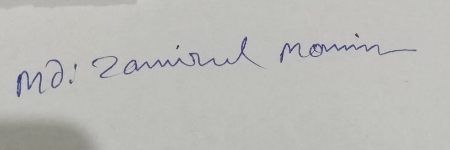 MD: Zamirul Momin